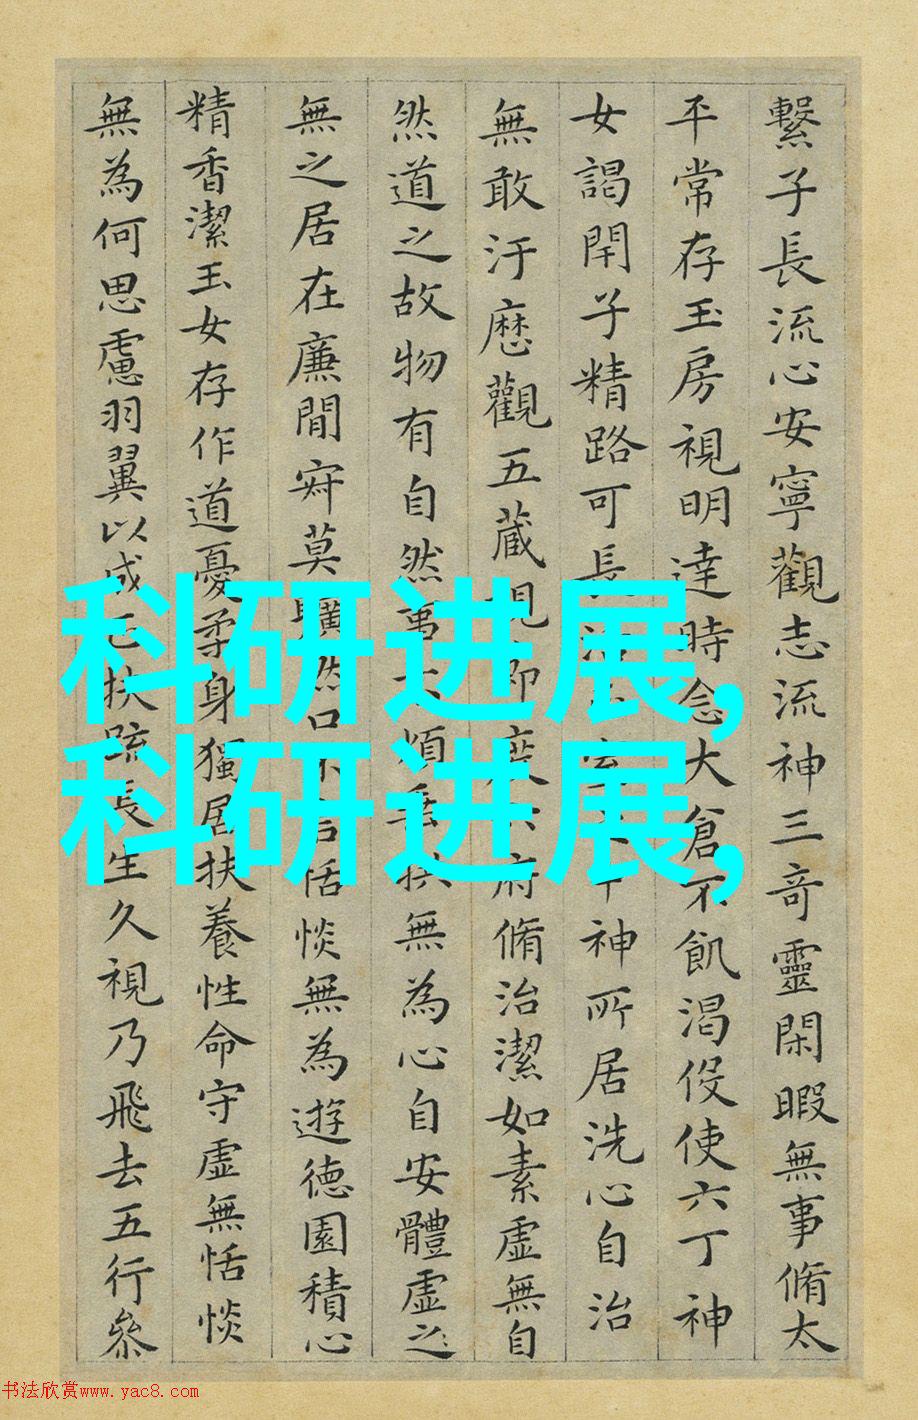 繫子長流心安寧觀志流神三奇靈閑暇無事脩太
平常存玉房視明達時念大倉不飢渴伇使六丁神
女謁閇子精路可長神所居洗心自治
無敢汙歷觀五藏視節度六府脩治潔如素虛無自
然道之故物有自然事不煩垂拱無為心自安體虛之
無之居在廉間寂莫曠然口不言恬惔無為遊德園積心
精香潔玉女存作道憂柔身獨居扶養性命守虛無恬惔
無為何思慮羽翼以成正扶疏長生久視乃飛去五行參
科研进展,
科研进展,
书法欣赏www.yac8.com